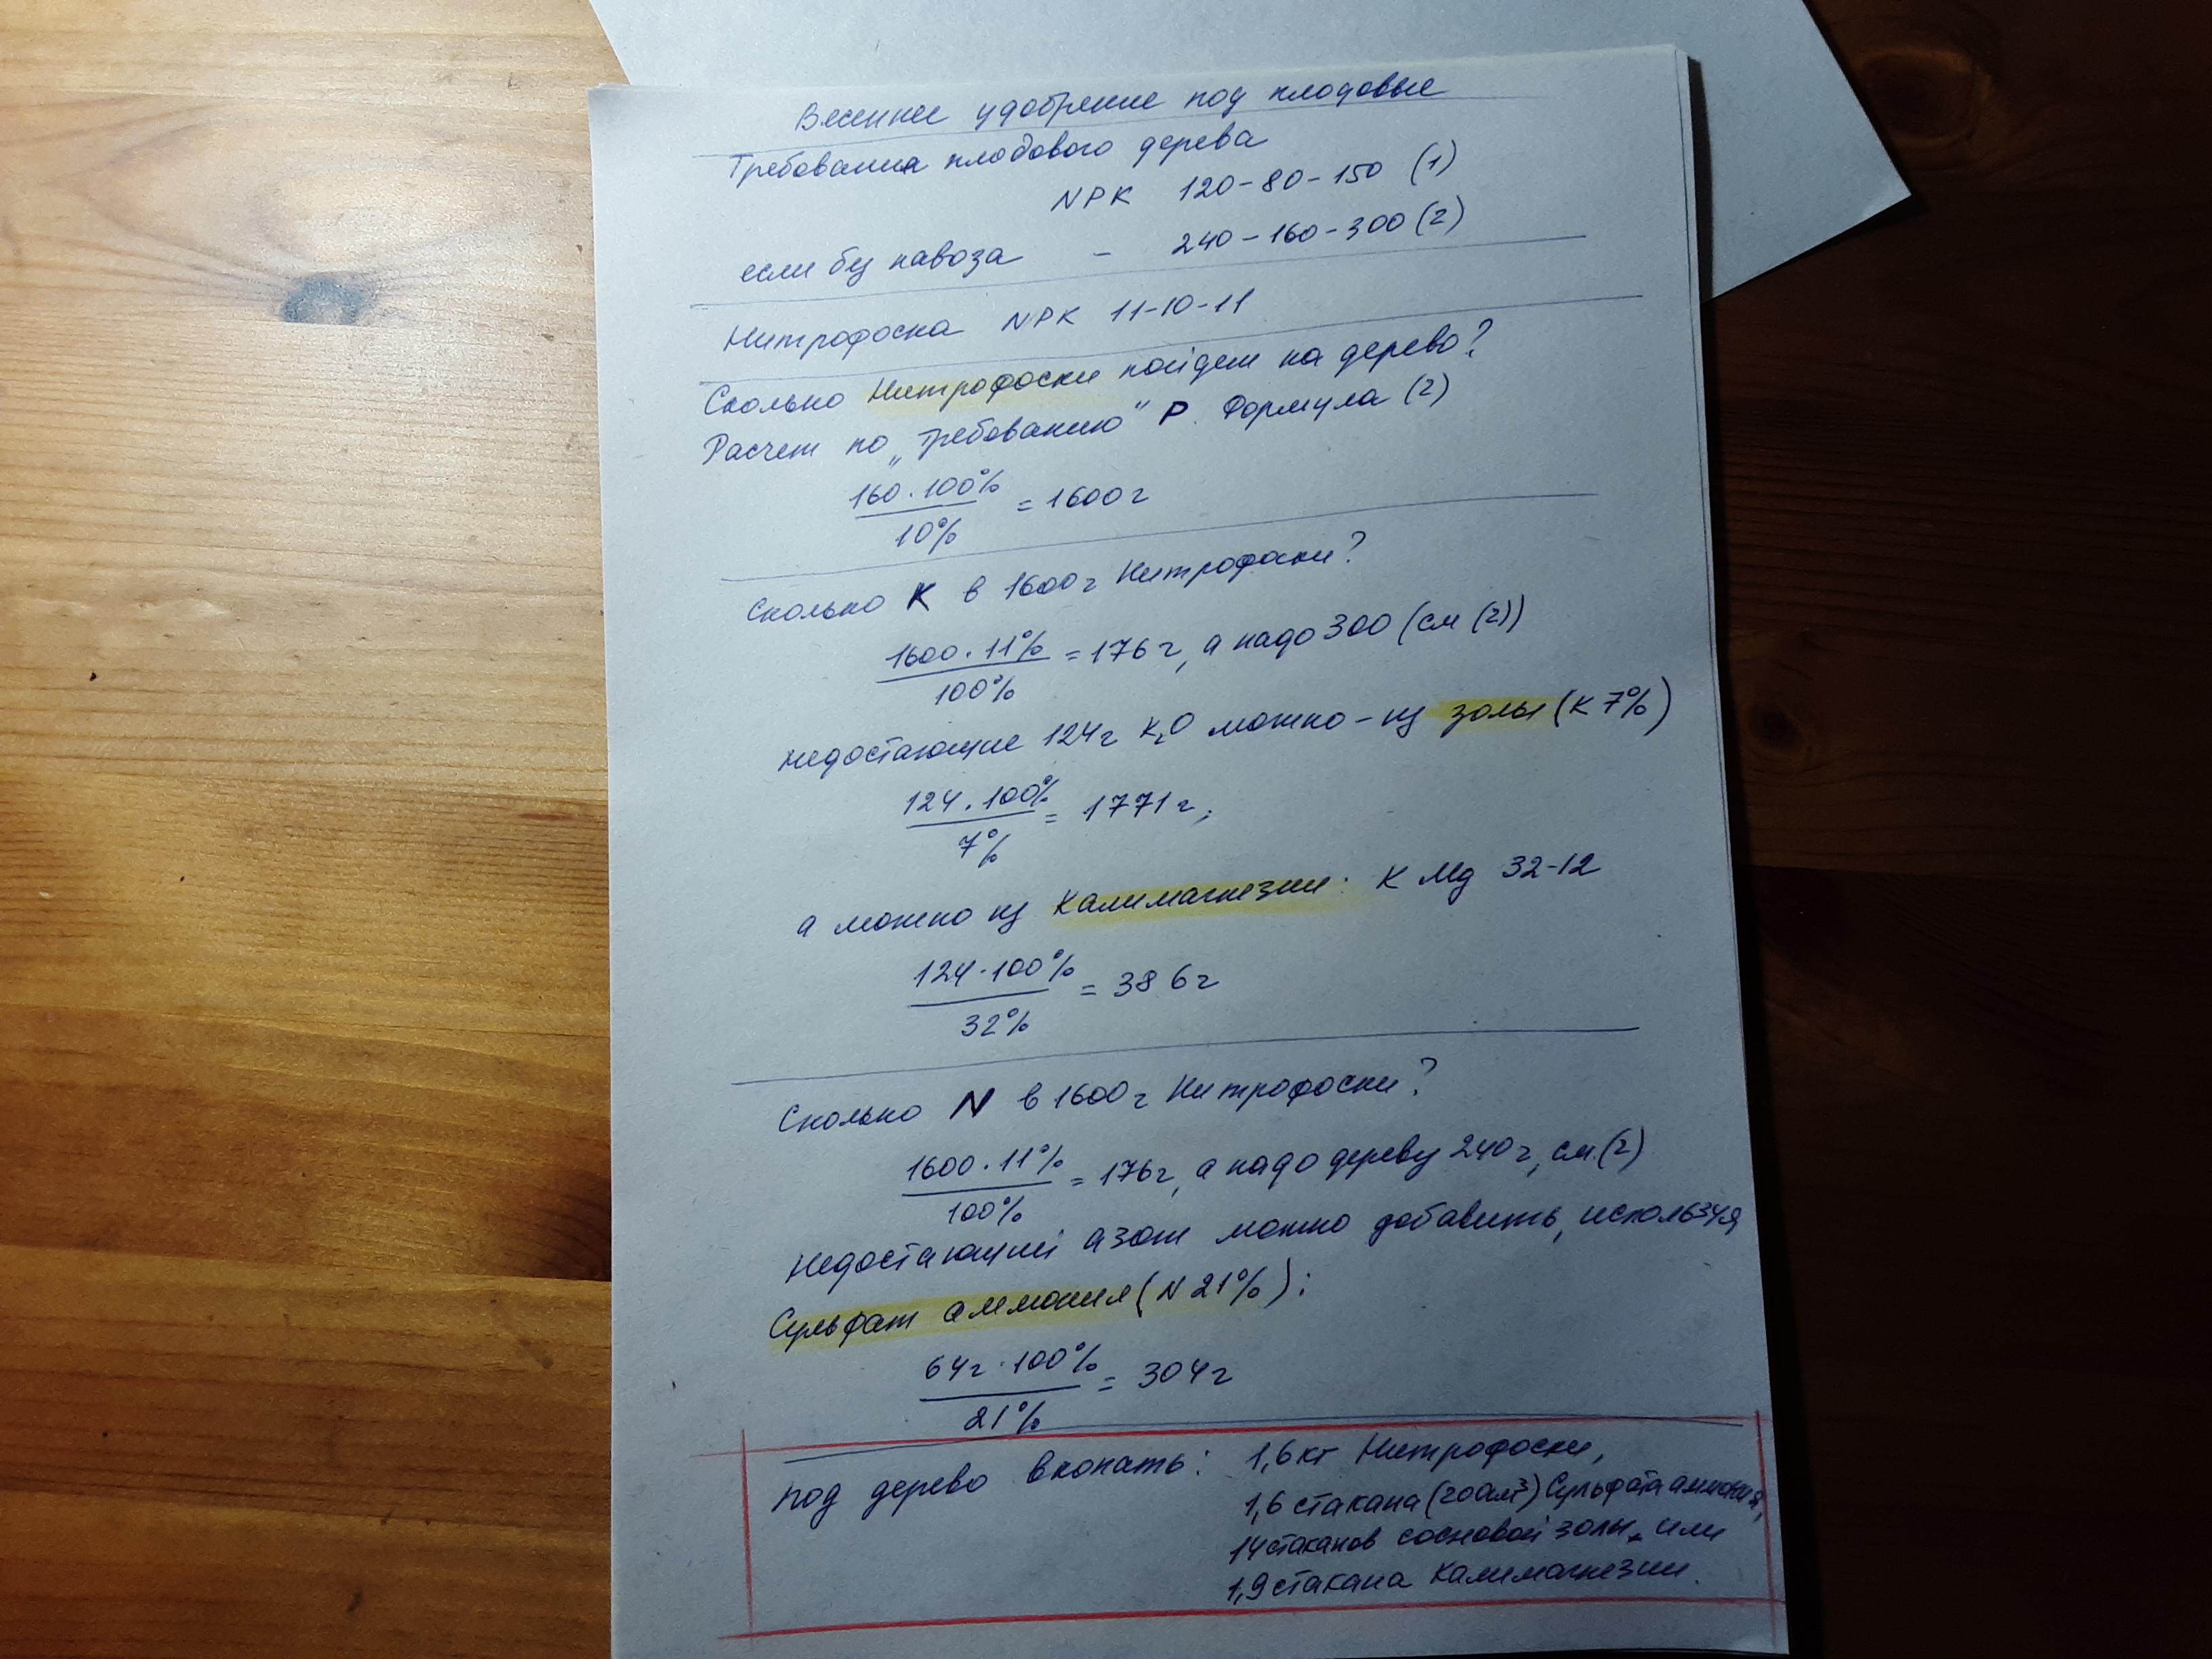 Весеннее удобрение под плодовые
Требования плодового дерева
NPK 120-80-150 (1)
если без навоза - 240-160-300 (2)
Нитрофоска NPK 11-10-11
Сколько Нитрофоски пойдет на дерево?
Расчет по „требованию" P. Формула (2)
160·100%
10%
= 1600г
Сколько K в 1600г Нитрофоски?
1600·11%
100%
= 176г, а надо 300 (см (2))
недостающие 124г K₂O можно - из золы (K 7%)
124·100%
7%
= 1771г;
а можно из Калимагнезии: K Mg 32-12
124·100%
32%
= 386г
Сколько N в 1600г Нитрофоски?
1600·11%
100%
= 176г, а надо дереву 240г, см.(2)
Недостающий азот можно добавить, используя
Сульфат аммония (N 21%):
64г·100%
21%
= 304г
Под дерево вкопать: 1,6 кг Нитрофоски,
1,6 стакана (200см³) Сульфата аммония,
14 стаканов сосновой золы, или
1,9 стакана Калимагнезии.